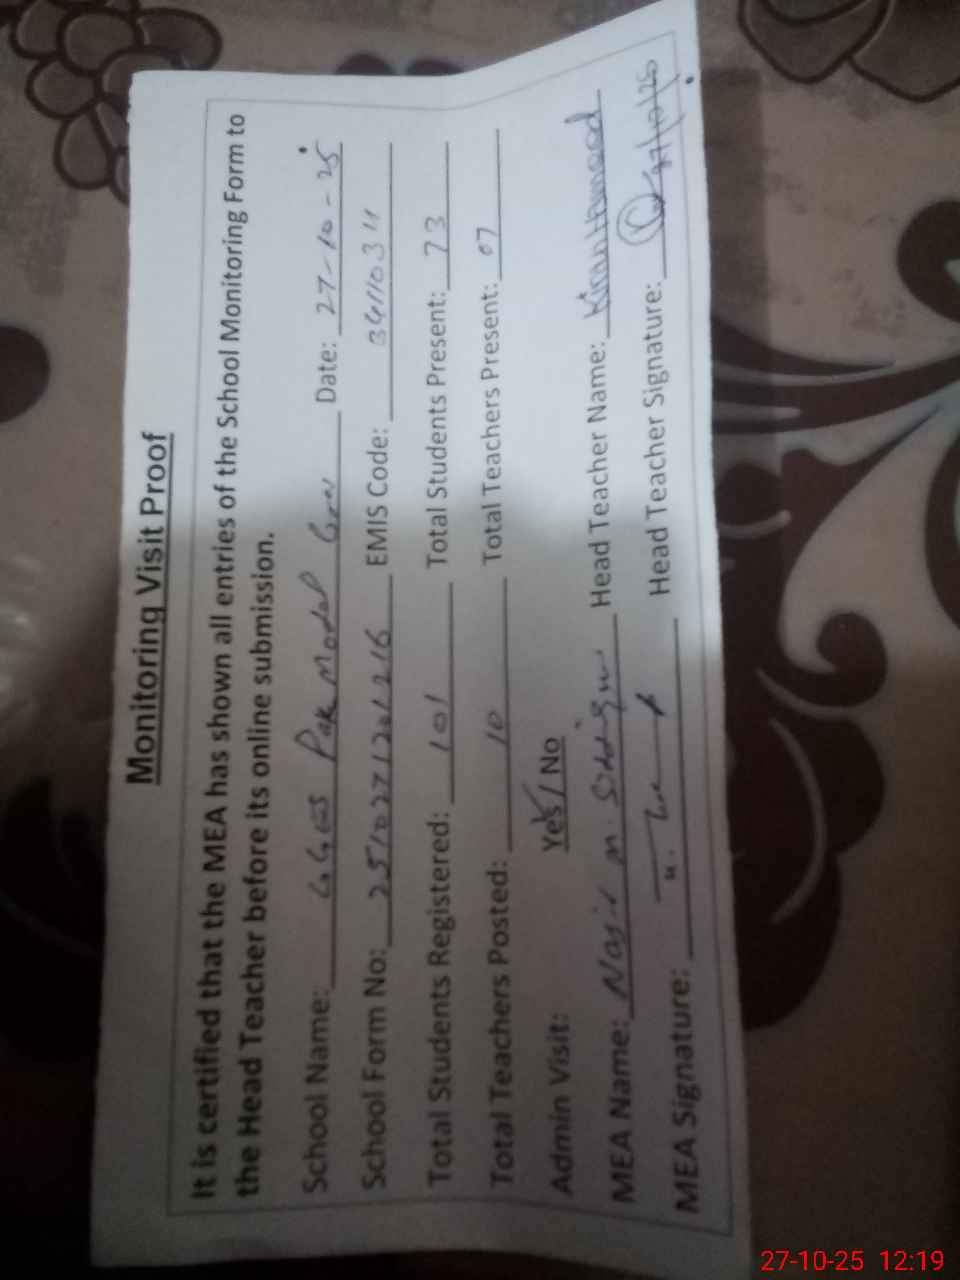 Monitoring Visit Proof
It is certified that the MEA has shown all entries of the School Monitoring Form to
the Head Teacher before its online submission.
School Name: GGES Pak Model Date: 27-10-25
School Form No: 2510271201216 EMIS Code: 34110311
Total Students Registered: 101 Total Students Present: 73
Total Teachers Posted: 10 Total Teachers Present: 07
Admin Visit: Yes / No
MEA Name: M. Head Teacher Name: Kiran
MEA Signature: Head Teacher Signature: 27/10/25
27-10-25 12:19